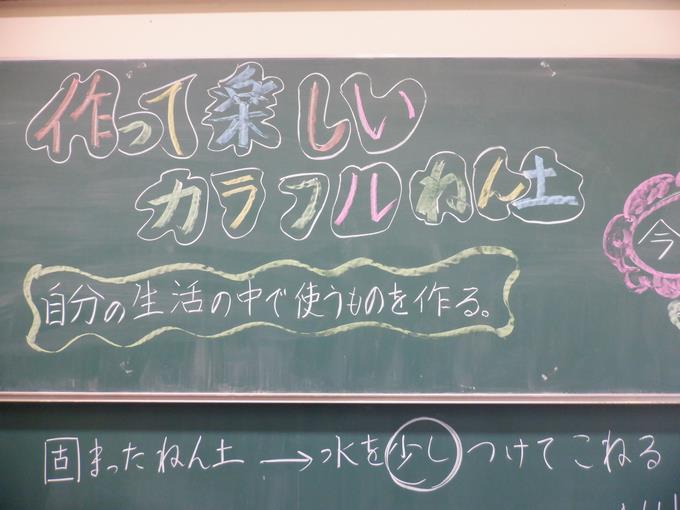 作って楽しい
カラフルねん土
今
自分の生活の中で使うものを作る。
固まったねん土→水を少しつけてこねる